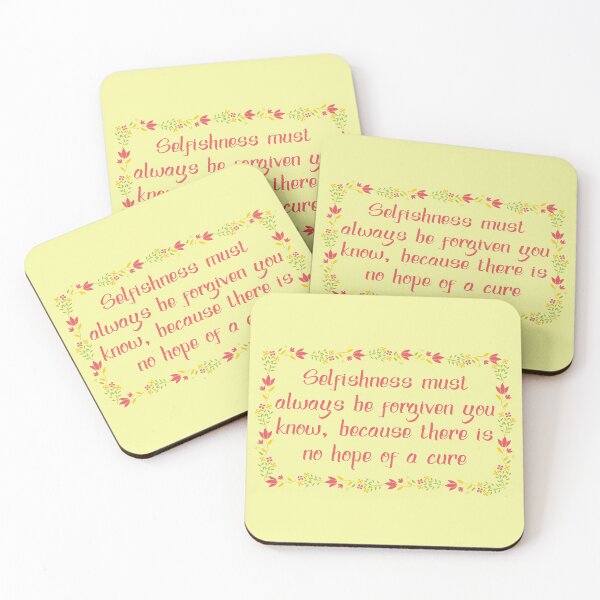 Selfishness must
always be forgiven you
know, because there
cure
Selfishness must
always be forgiven you
know, because there is
no hope of a cure
Selfishness must
always be forgiven you
know, because there is
no hope of a
Selfishness must
always be forgiven you
know, because there is
no hope of a cure